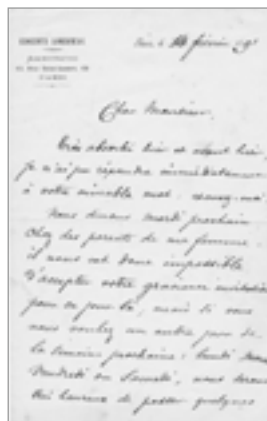 CONCERTS LAMOUREUX
Paris, le 18 février 9
Cher Monsieur,
Très absorbé hier et avant hier,
je n'ai pu répondre immédiatement
à votre aimable mot.
Nous dinons mardi prochain
chez des parents de ma femme.
il nous est donc impossible
d'accepter votre gracieuse invitation
pour ce jour là, mais si vous
nous voulez un autre jour de
la semaine prochaine:
Vendredi ou Samedi, nous serons
très heureux de passer quelques